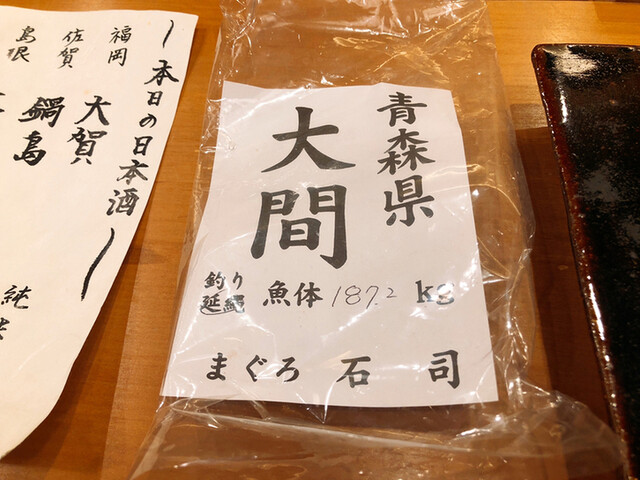 青森県
大間
釣り
延縄
魚体 187.2 kg
まぐろ 石司
~本日の日本酒~
福岡 大賀
佐賀 鍋島
島根
純